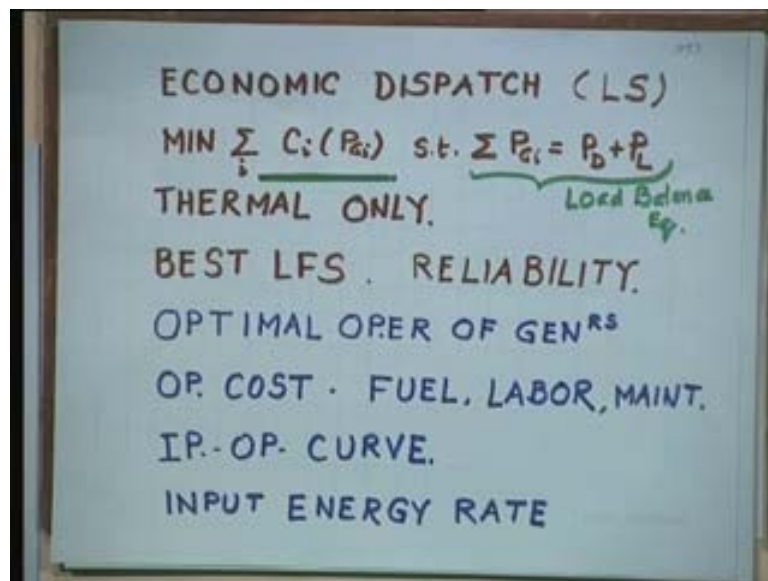 ECONOMIC DISPATCH (LS)
MIN Σ_i C_i(P_Gi) s.t. Σ P_Gi = P_D + P_L
Load Balance
Eq.
THERMAL ONLY.
BEST LFS. RELIABILITY.
OPTIMAL OPER OF GEN^RS
OP. COST. FUEL, LABOR, MAINT.
IP.-OP. CURVE.
INPUT ENERGY RATE